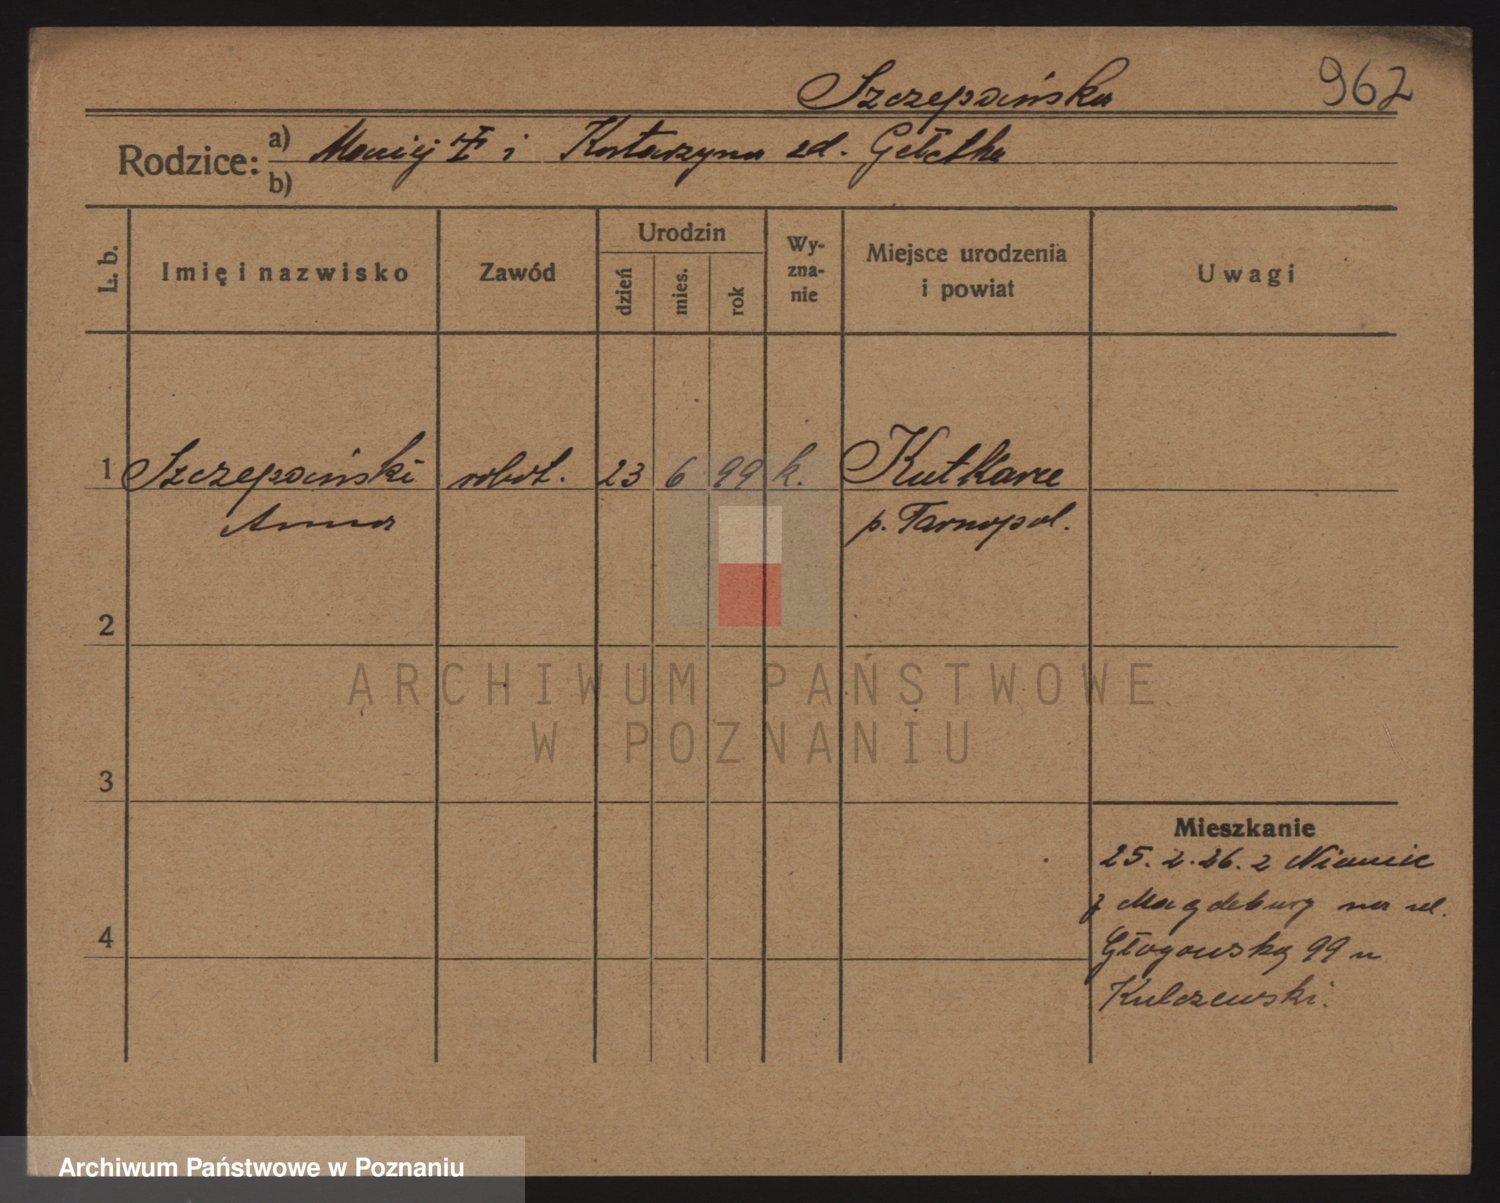 Szczepańska 962
Rodzice: a) Maciej i Katarzyna zd.
b)
L. b. Imię i nazwisko Zawód Urodzin dzień mies. rok Wy-zna-nie Miejsce urodzenia i powiat Uwagi
1 Szczepański robot. 23 6 99 k. Kutkowce
Anna p. Tarnopol.
2
ARCHIWUM PAŃSTWOWE
W POZNANIU
3
Mieszkanie
25. 2. 26. z Niemic
z Magdeburg na ul.
4
Głogowską 99 u
Kulczewski.
Archiwum Państwowe w Poznaniu